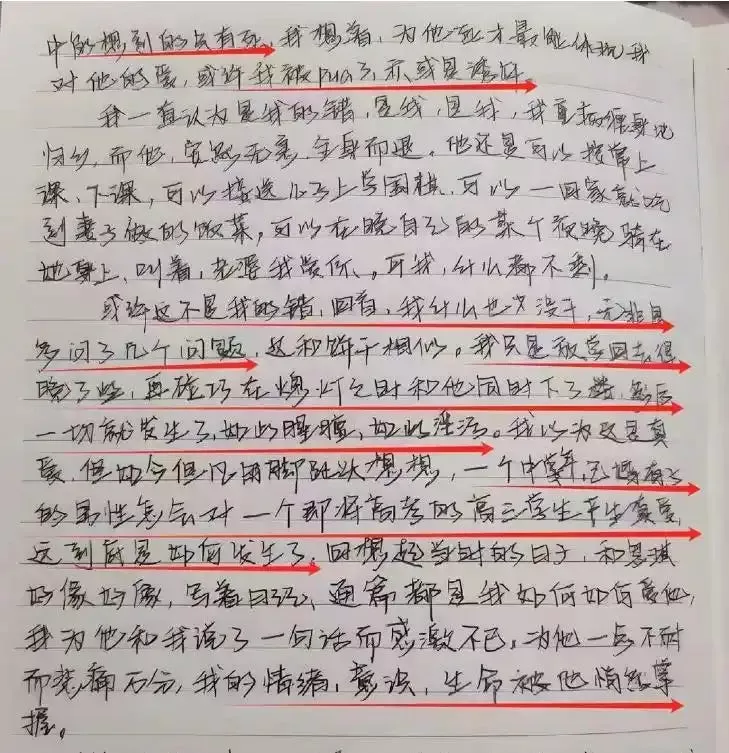 中的想到的只有死，我想着，为他死才最能体现我
对他的爱，或许我被pua了，亦或是洗脑。
我一直认为是我的错，是我，是我，我直
归乡，而他，安然无恙，全身而退。他还是可以按常上
课、下课，可以接送儿子上学围棋，可以一回家就吃
到妻子做的饭菜，可以在晚自习的某个夜晚骑在
她身上，叫着，老婆我爱你、，可我，什么都不剩。
或许这不是我的错，回首，我什么也没干，无非是
多问了几个问题，这和饼干相似。我只是放学回去得
晚了些，再碰巧在熄灯之时和他同时下了楼，然后
一切就发生了，如此腥膻，如此淫污。我以为这是真
爱，但如今但凡用脚趾头想想，一个中年，已婚有子
的男性怎会对一个即将高考的高三学生产生真爱，
这到底是如何发生了，回想起当时的日子，和思琪
好像好像，写着日记，通篇都是我如何如何爱他，
我为他和我说了一句话而感激不已，为他一点不耐
而悲痛万分，我的情绪，意识，生命被他悄然掌
握。